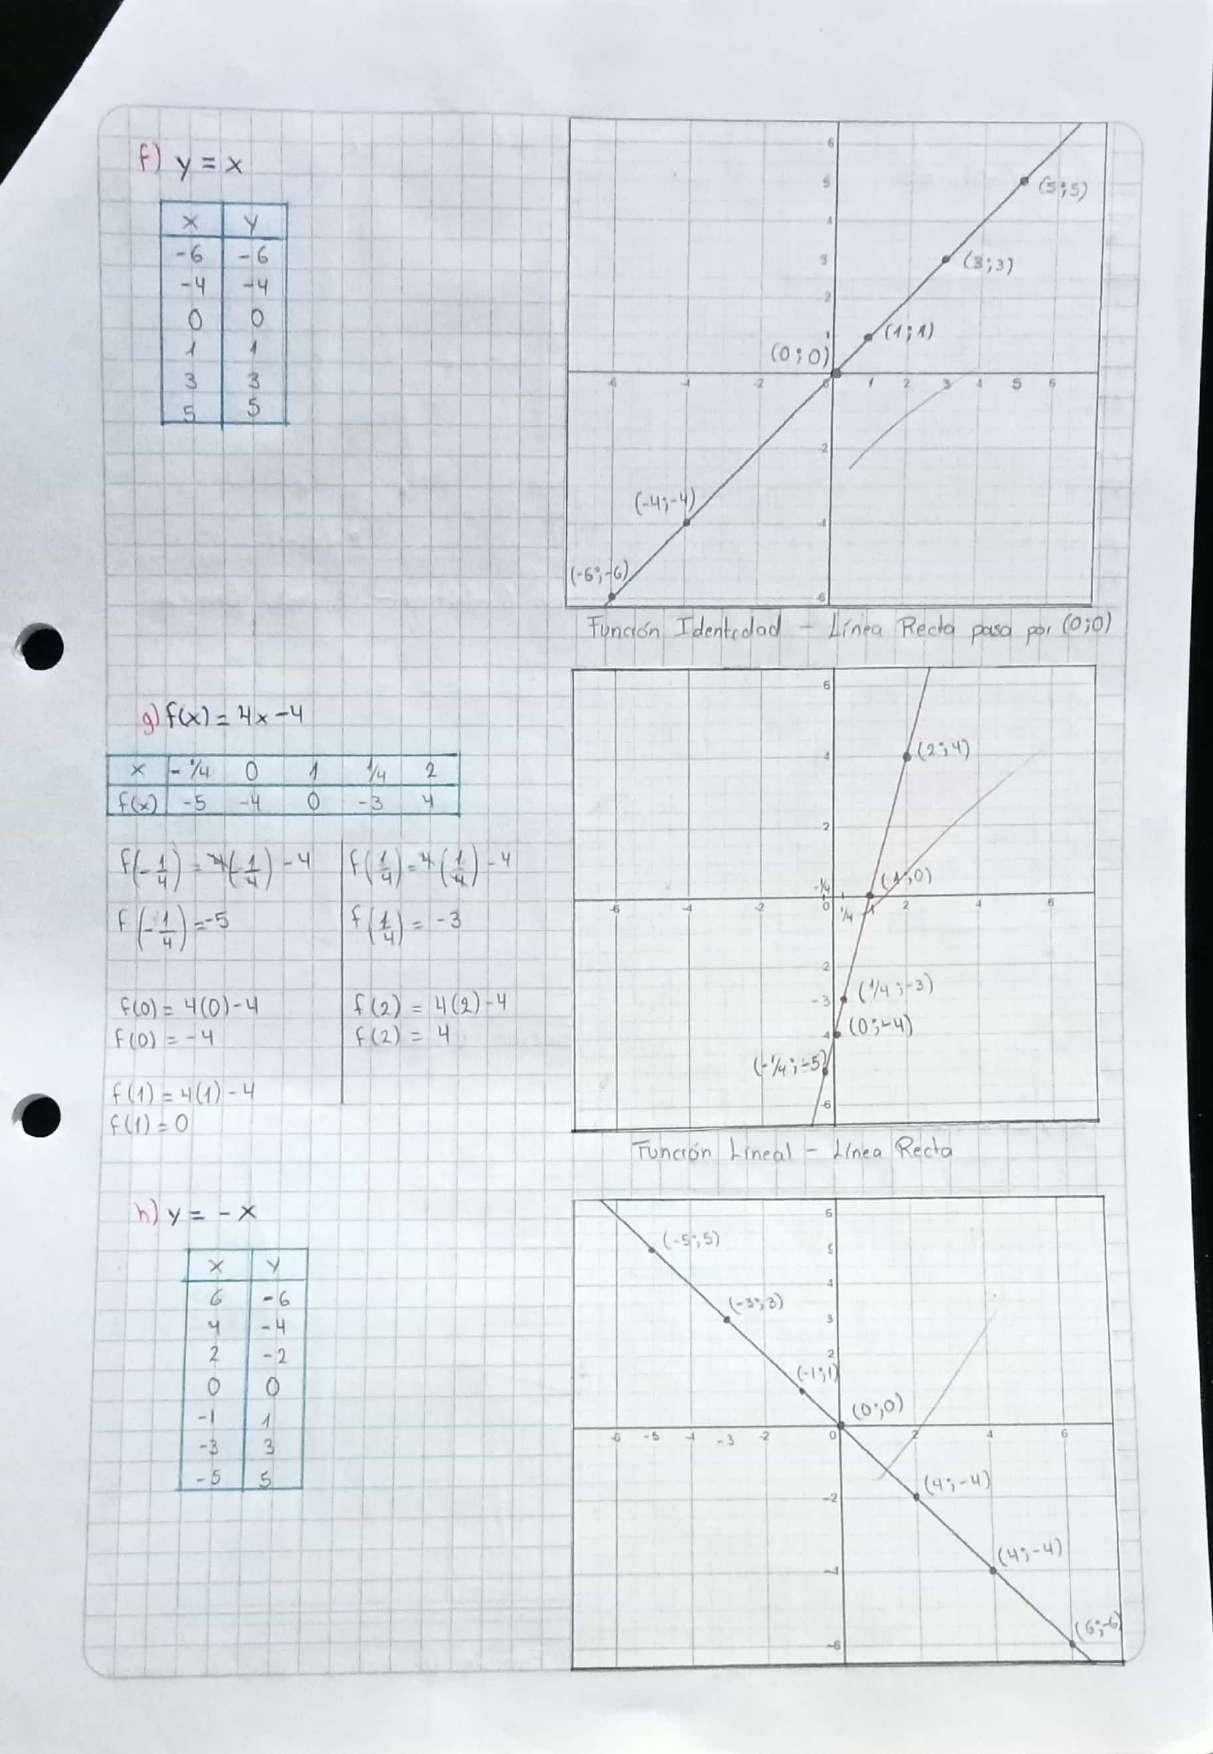 f) y = x
x y
-6 -6
-4 -4
0 0
1 1
3 3
5 5
6
5 (5;5)
4
3 (3;3)
2
1 (1;1)
(0;0)
-6 -4 -2 0 1 2 3 4 5 6
-2
(-4;-4)
-4
(-6;-6)
-6
Función Identidad - Línea Recta pasa por (0;0)
g) f(x) = 4x - 4
x -1/4 0 1 1/4 2
f(x) -5 -4 0 -3 4
f(-1/4) = 4(-1/4) - 4
f(-1/4) = -5
f(0) = 4(0) - 4
f(0) = -4
f(1) = 4(1) - 4
f(1) = 0
f(1/4) = 4(1/4) - 4
f(1/4) = -3
f(2) = 4(2) - 4
f(2) = 4
6
4 (2;4)
2
-1/4 (1;0)
-6 -4 -2 0 1/4 1 2 4 6
2
-3 (1/4;-3)
-4 (0;-4)
(-1/4;-5)
-6
Función Lineal - Línea Recta
h) y = -x
x y
6 -6
4 -4
2 -2
0 0
-1 1
-3 3
-5 5
6
(-5;5) 5
4
(-3;3) 3
2
(-1;1)
(0;0)
-6 -5 -4 -3 -2 0 2 4 6
-2 (4;-4)
-4 (4;-4)
-6 (6;-6)